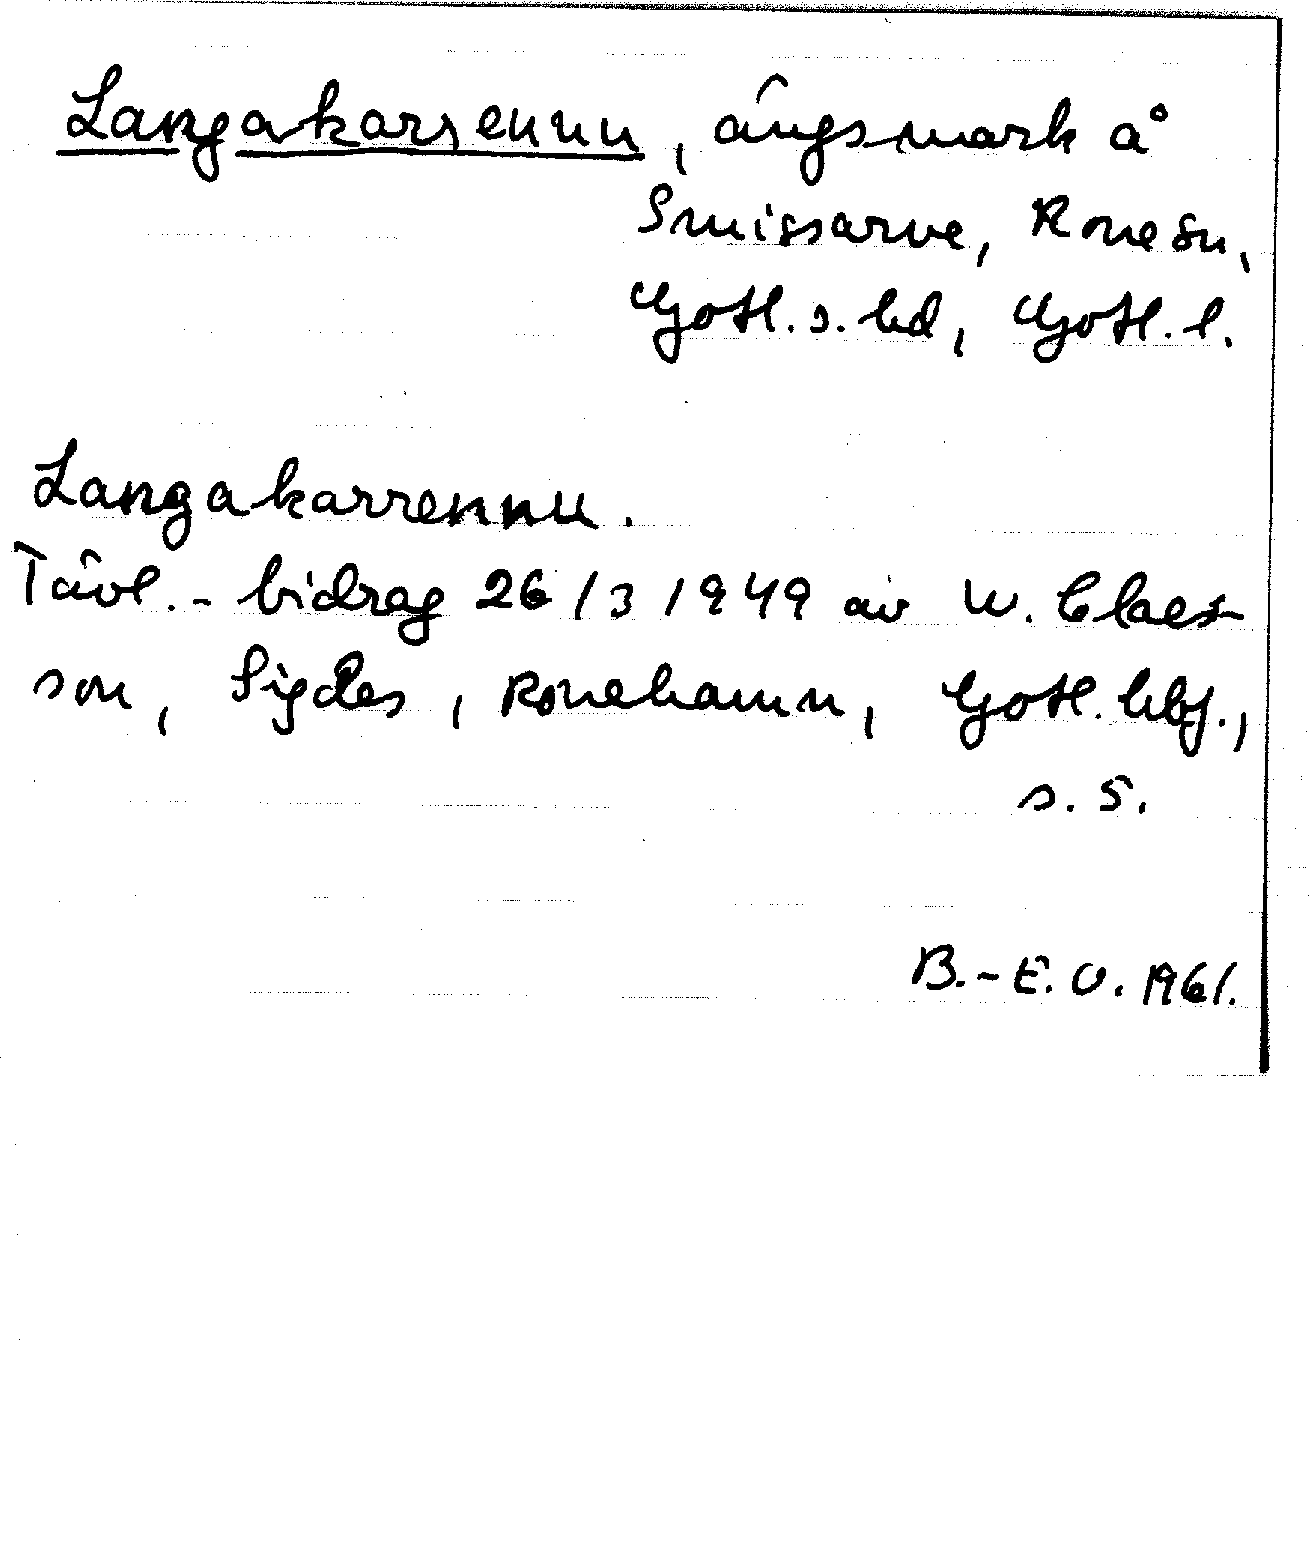 Langakarrennu, ängsmark å
Smissarve, Rone sn,
Gotl. s. hd, Gotl. l.
Langakarrennu.
Tävl.- bidrag 26/3 1949 av W. Claes-
son, Sigdes, Ronehamn, Gotl. hbf.,
s. 5.
B.-E. O. 1961.